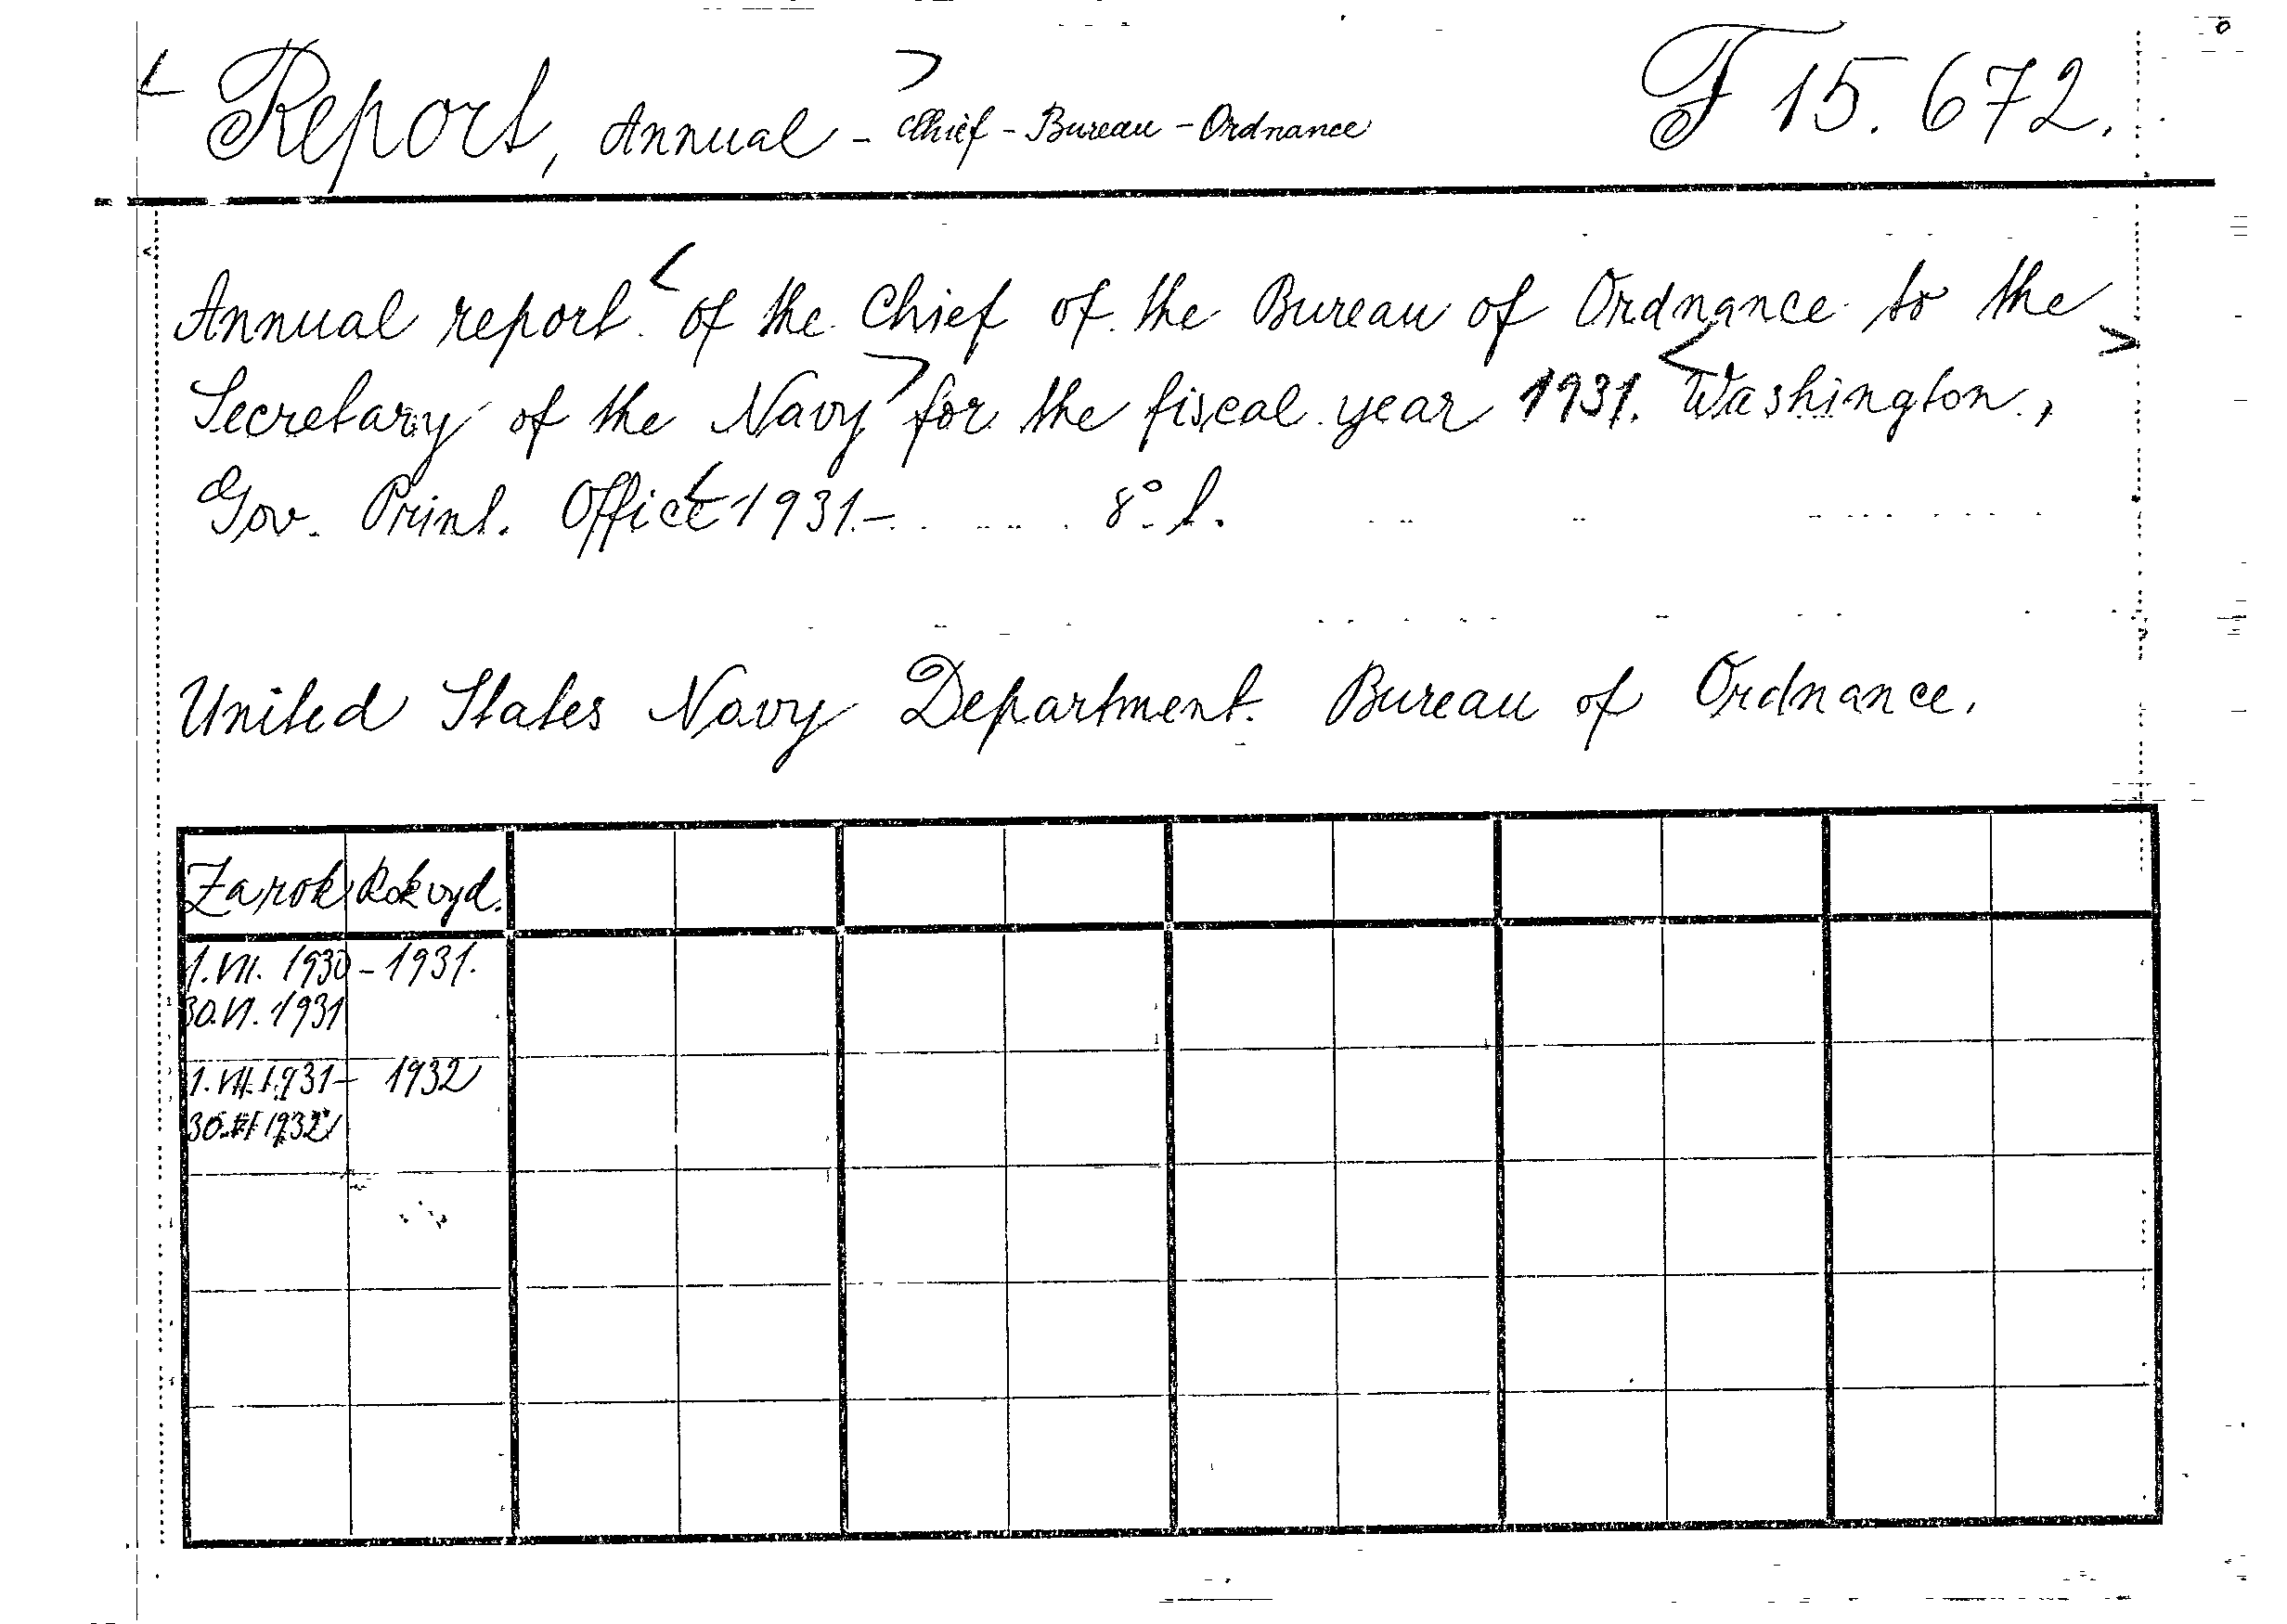 Report, Annual - Chief - Bureau - Ordnance F 15.672.
Annual report of the Chief of the Bureau of Ordnance to the
Secretary of the Navy for the fiscal year 1931. Washington,
Gov. Print. Office 1931.- 8° l.
United States Navy Department. Bureau of Ordnance.
Za rok Rok vyd.
1.VII. 1930 - 1931.
30.VI. 1931
1.VII.1931- 1932
30.VI 1932